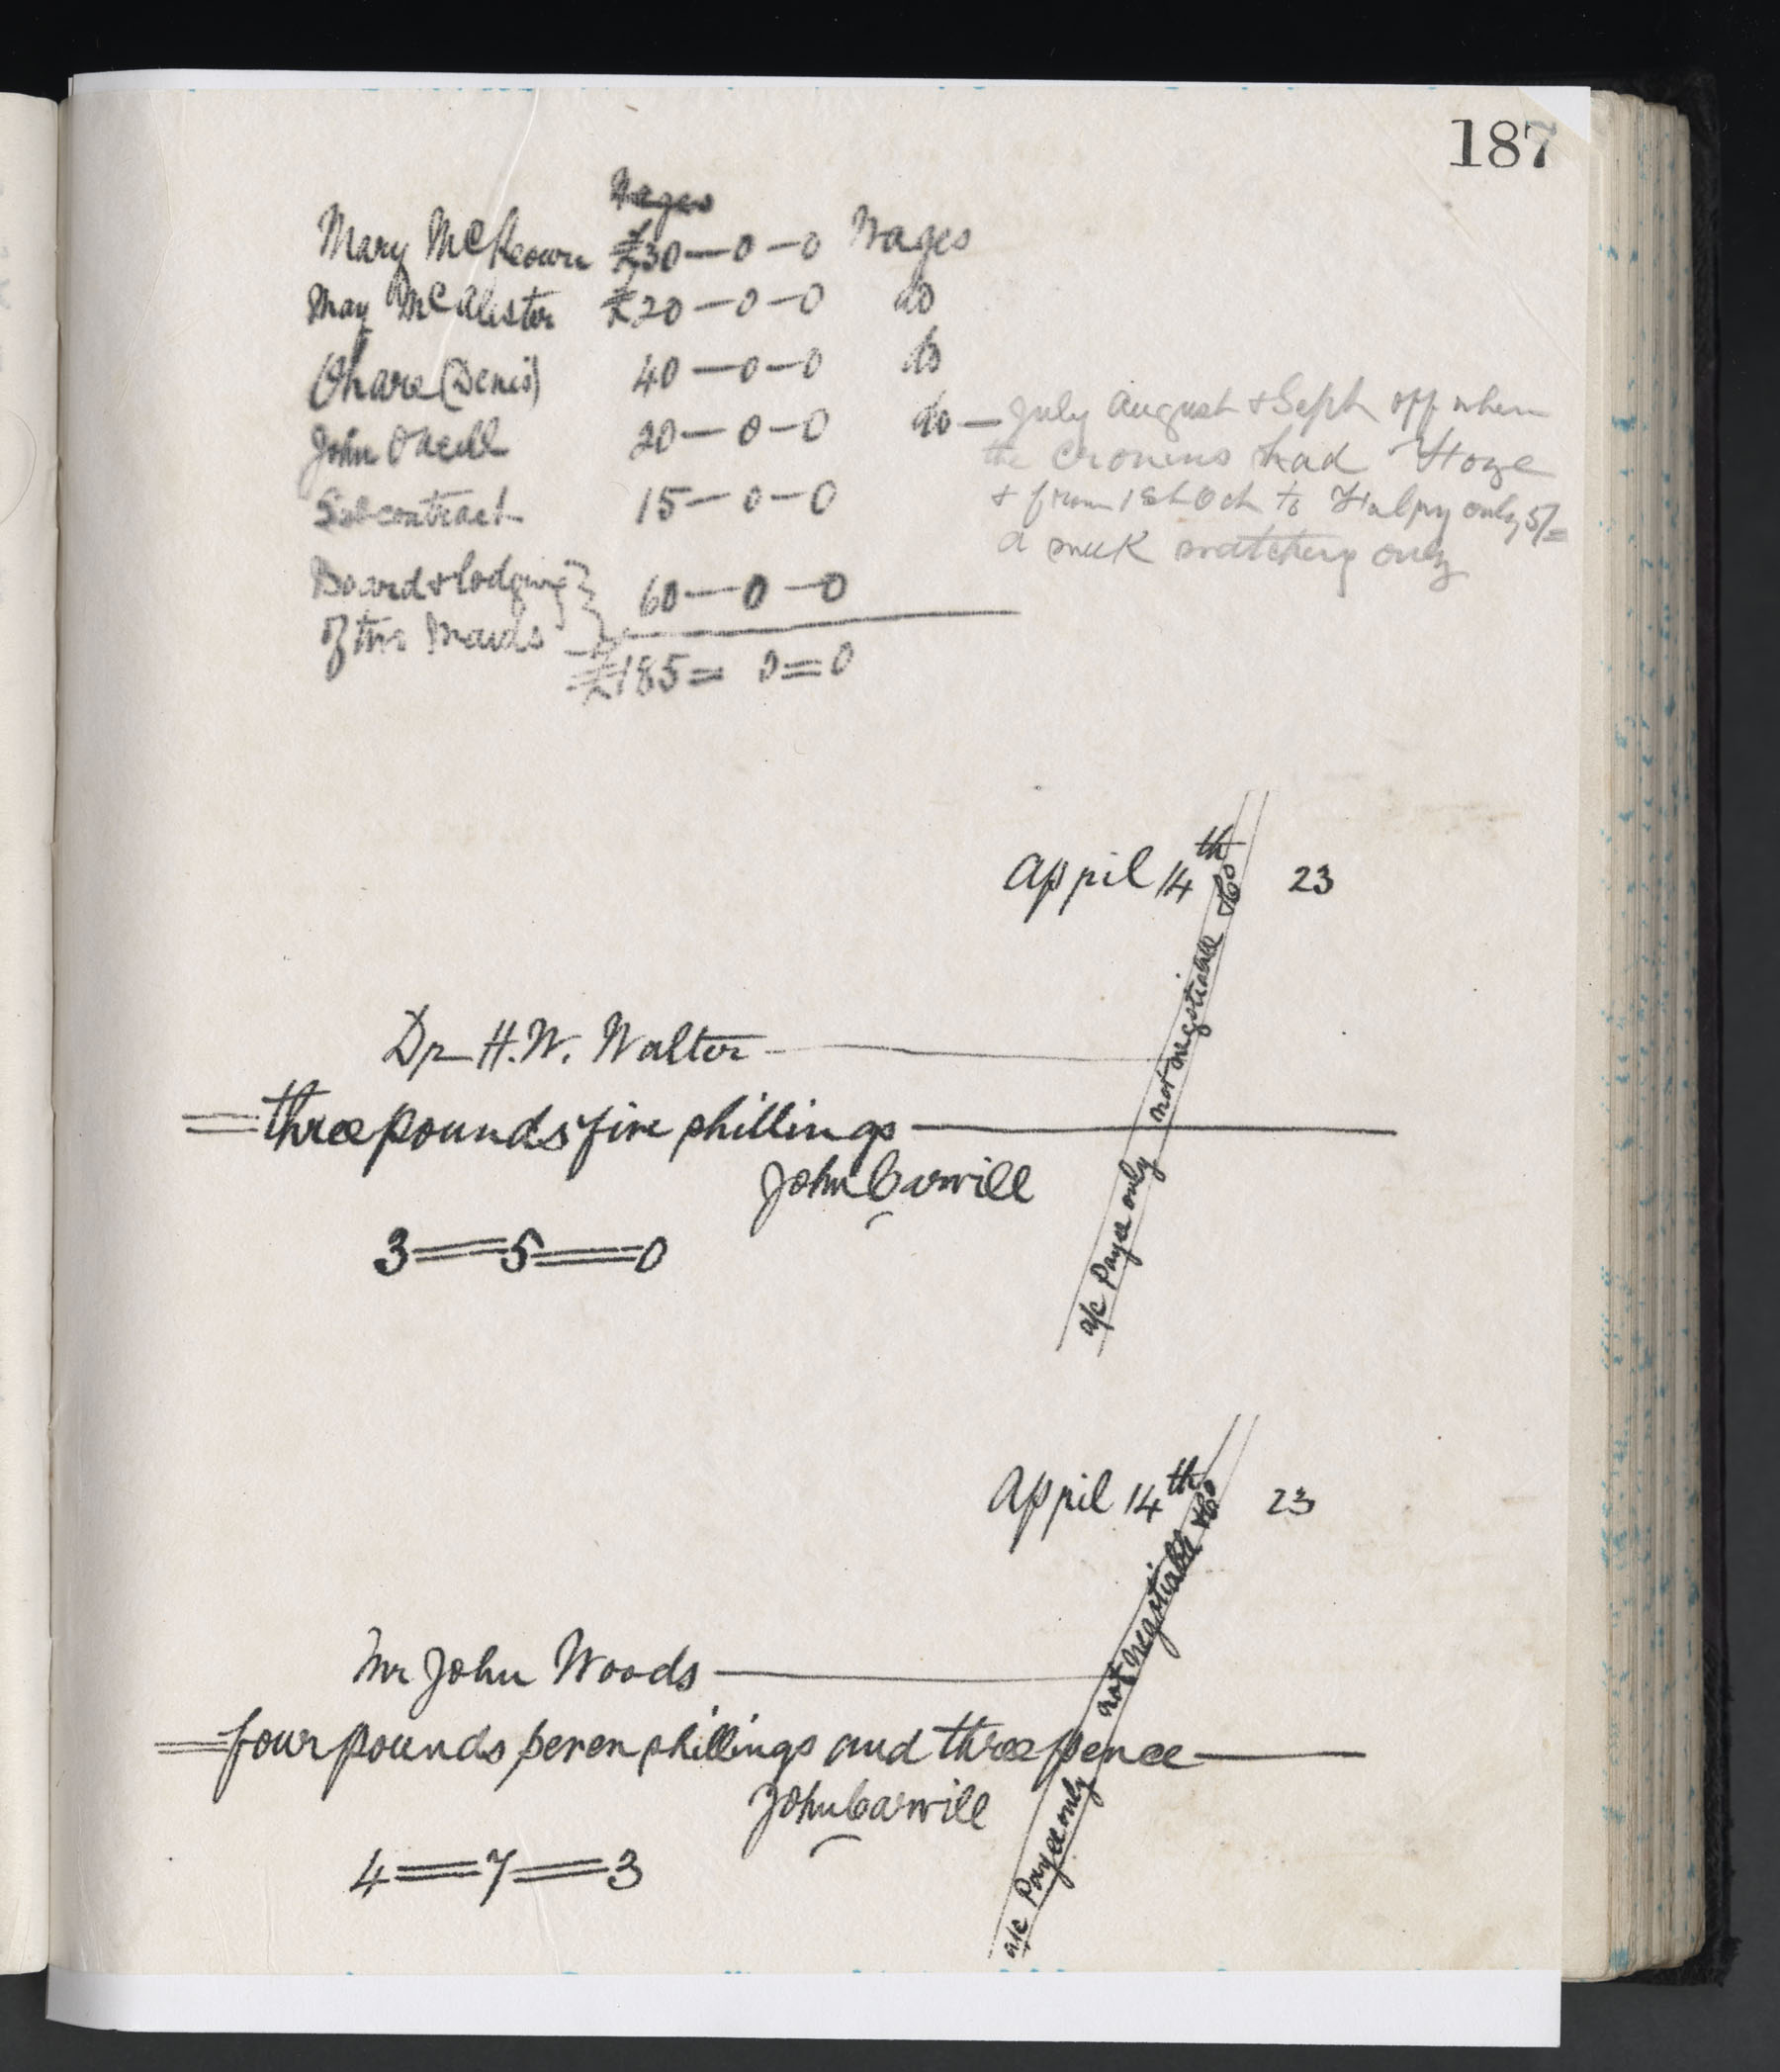 187
Wages
Mary McKeown £30—0—0 Wages
May McAlister £20—0—0 do
Ohare (Denis) 40—0—0 do
John Oneill 20—0—0 do — July August & Sept off when
the Cronins had
& from 1st Oct to only 5/=
a week watching only
Subcontract 15—0—0
Board & lodging } 60—0—0
of two Maids }
£185=0=0
April 14th 23
Dr H.W. Walter
= three pounds five shillings
John Carvill
3=5=0
a/c Payee only not negotiable & Co
April 14th 23
Mr John Woods
= four pounds seven shillings and three pence
John Carvill
4=7=3
a/c Payee only not negotiable & Co